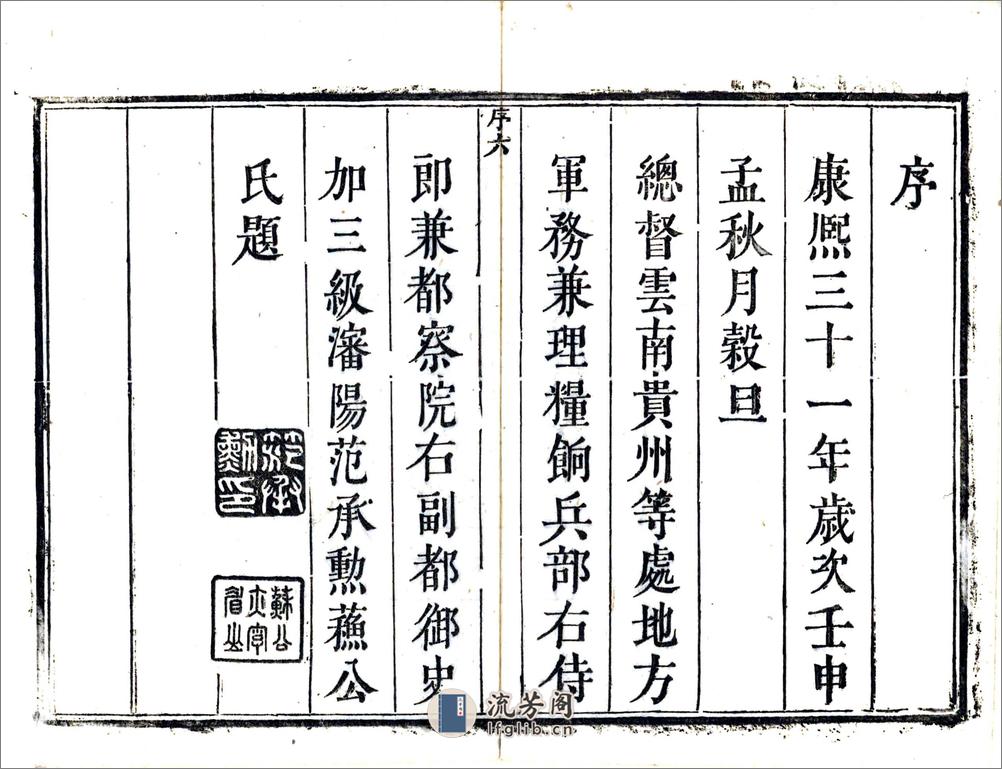 序
康熙三十一年歲次壬申
孟秋月穀旦
總督雲南貴州等處地方
軍務兼理糧餉兵部右侍
序六
郎兼都察院右副都御史
加三級瀋陽范承勲蘓公
氏題
范承勲印
蘇公
流芳阁
lfglib.cn